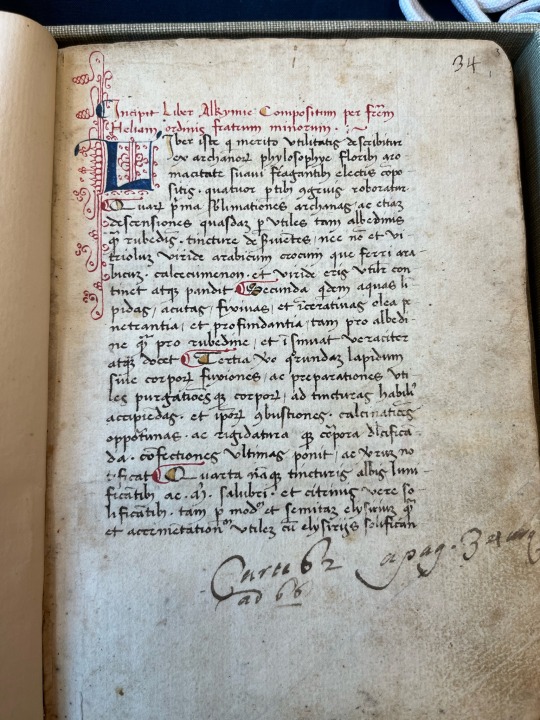 34
Incipit Liber Alkymie Compositum per frēm
Heliam ordinis fratrum minorum
Liber iste q merito utilitatis describitur
ex archanoꝝ phylosophye floribꝫ aro
macitate suaui fragantibꝫ electis cōpo
sitꝯ quatuor ꝑtibꝫ ꝯgruis roboratur
Quaꝝ p͛ma Sublimationes archanas ac etiam
descensiones quasdam ꝑ utiles tam albedinis
rubedīs tincture deseruiētes nec nō et vi
triolum viride arabicum crocum que ferri ara
bicuꝫ calcecumenon et viride eris utilr con
tinet atqꝫ pandit Secunda qdem aquas li
pidas, acutas, fixiuas, et īcerativas elea pe
netrantia, et profundantia, tam pro albedi
ne pro rubedine, et īsinuat veraciter
atqꝫ docet Tertia vo qrundam lapidum
siue corpoꝝ fuxiones, ac preparationes uti
les purgatiōesqꝫ corpoꝝ, ad tincturas habilꝰ
accipiēdas, et ipoꝝ ꝯbustiones, calcinatiōes
opportunas, ac rigidatura corpora dlcifica
da, cōfectiones ultimas ponit, ac no
tificat Quarta nāqꝫ tincturis albis luni
ficātibꝫ, ac salubri, et citrinis vere so
lificātibꝫ, tam ꝑ modū et semitas elysiriū
et acermētationū utilez cū elysirijs solifican
Carte 62 a pag. 34
ad 66